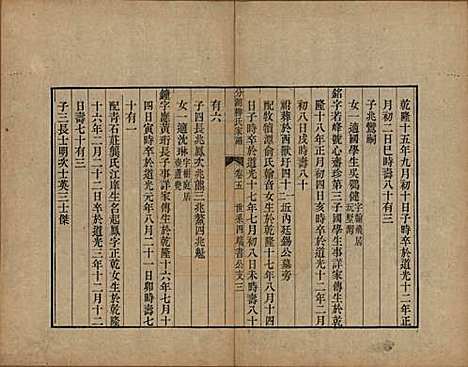 乾隆十五年九月初十日子時卒於道光十二年正
月初二日巳時壽八十有三
子兆鸞嗣
女一適國學生吳鶴健
銘字若峰號心齋珍第三子國學生事詳家傳生於乾
隆十八年正月初四日亥時卒於道光十二年二月
初十日子時壽八十
祔葬於西獻圩四十二圻內廷錫公墓旁
配牧犢潭俞氏翰音女生於乾隆十七年八月十四
日子時卒於道光十七年七月初八日未時壽八十
分湖柳氏家譜
卷五
世系四
公文三
有六
子四長兆鳳次兆熊三兆鰲四兆魁
女一適沈琳
鐘字廳黃珩子事詳家傳生於乾隆十六年七月十
四日寅時卒於道光元年八月二十一日卯時壽七
十有一
配青石莊熊氏江庠生名起鳳字正乾女生於乾隆
十六年二月二十一日時卒於道光二年十月十二
日壽七十有三
子三長士明次士英三士傑